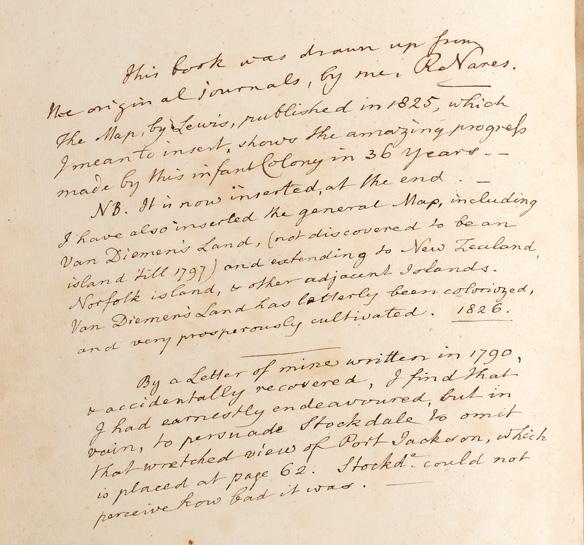 This book was drawn up from
the original journals, by me, R. Nares.
The Map, by Lewis, published in 1825, which
I mean to insert, shows the amazing progress
made by this infant Colony in 36 years. —
NB. It is now inserted, at the end. —
I have also inserted the general Map, including
Van Diemen's Land, (not discovered to be an
island 'till 1797) and extending to New Zealand,
Norfolk island, & other adjacent Islands.
Van Diemen's Land has latterly been colonized,
and very prosperously cultivated. 1826.
By a Letter of mine written in 1790,
& accidentally recovered, I find that
I had earnestly endeavoured, but in
vain, to persuade Stockdale to omit
that wretched view of Port Jackson, which
is placed at page 62. Stockd.ᵉ could not
perceive how bad it was. —